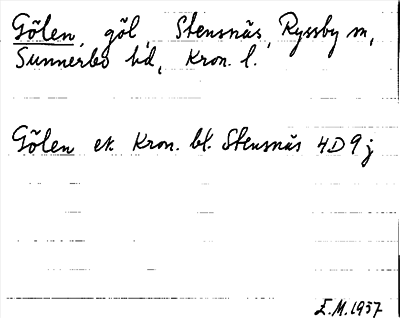 Gölen, göl, Stensnäs, Ryssby sn,
Sunnerbo hd, Kron. l.
Gölen ek. Kron. bl. Stensnäs 4D9j
E.M.1937